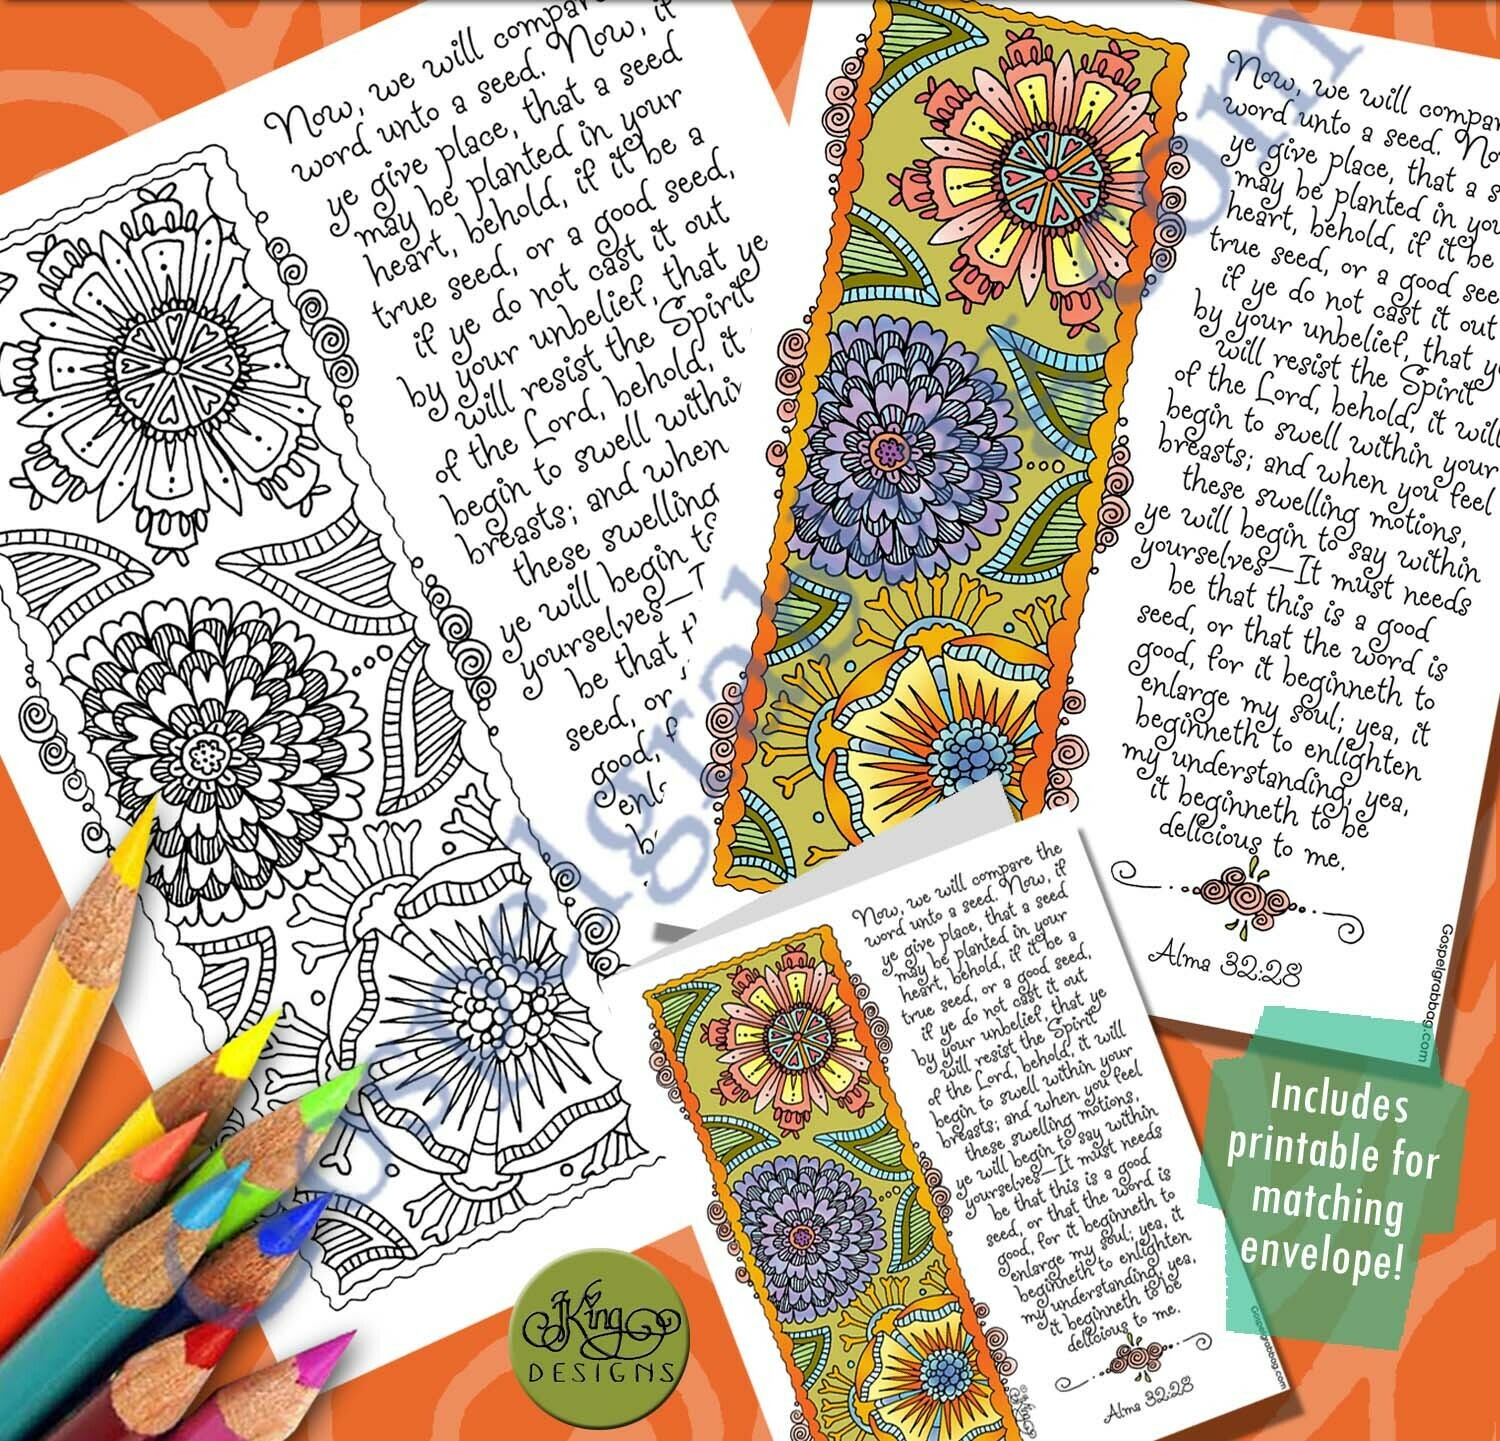 Now, we will compare
word unto a seed. Now, if
ye give place, that a seed
may be planted in your
heart, behold, if it be a
true seed, or a good seed,
if ye do not cast it out
by your unbelief, that ye
will resist the Spirit
of the Lord, behold, it
begin to swell within
breasts; and when
these swelling
ye will begin to
yourselves—
be that
seed, or
good,
Now, we will compare
word unto a seed.
ye give place, that a
may be planted in
heart, behold, if it be
true seed, or a good
if ye do not cast it out
by your unbelief, that
will resist the Spirit
of the Lord, behold, it will
begin to swell within your
breasts; and when you feel
these swelling motions,
ye will begin to say within
yourselves—It must needs
be that this is a good
seed, or that the word is
good, for it beginneth to
enlarge my soul; yea, it
beginneth to enlighten
my understanding, yea,
it beginneth to be
delicious to me.
Alma 32:28
Gospelgrabbag.com
Now, we will compare the
word unto a seed. Now, if
ye give place, that a seed
may be planted in your
heart, behold, if it be a
true seed, or a good seed,
if ye do not cast it out
by your unbelief, that ye
will resist the Spirit
of the Lord, behold, it will
begin to swell within your
breasts; and when you feel
these swelling motions,
ye will begin to say within
yourselves—It must needs
be that this is a good
seed, or that the word is
good, for it beginneth to
enlarge my soul; yea, it
beginneth to enlighten
my understanding, yea,
it beginneth to be
delicious to me.
Alma 32:28
Gospelgrabbag.com
Includes
printable for
matching
envelope!
JKing
DESIGNS